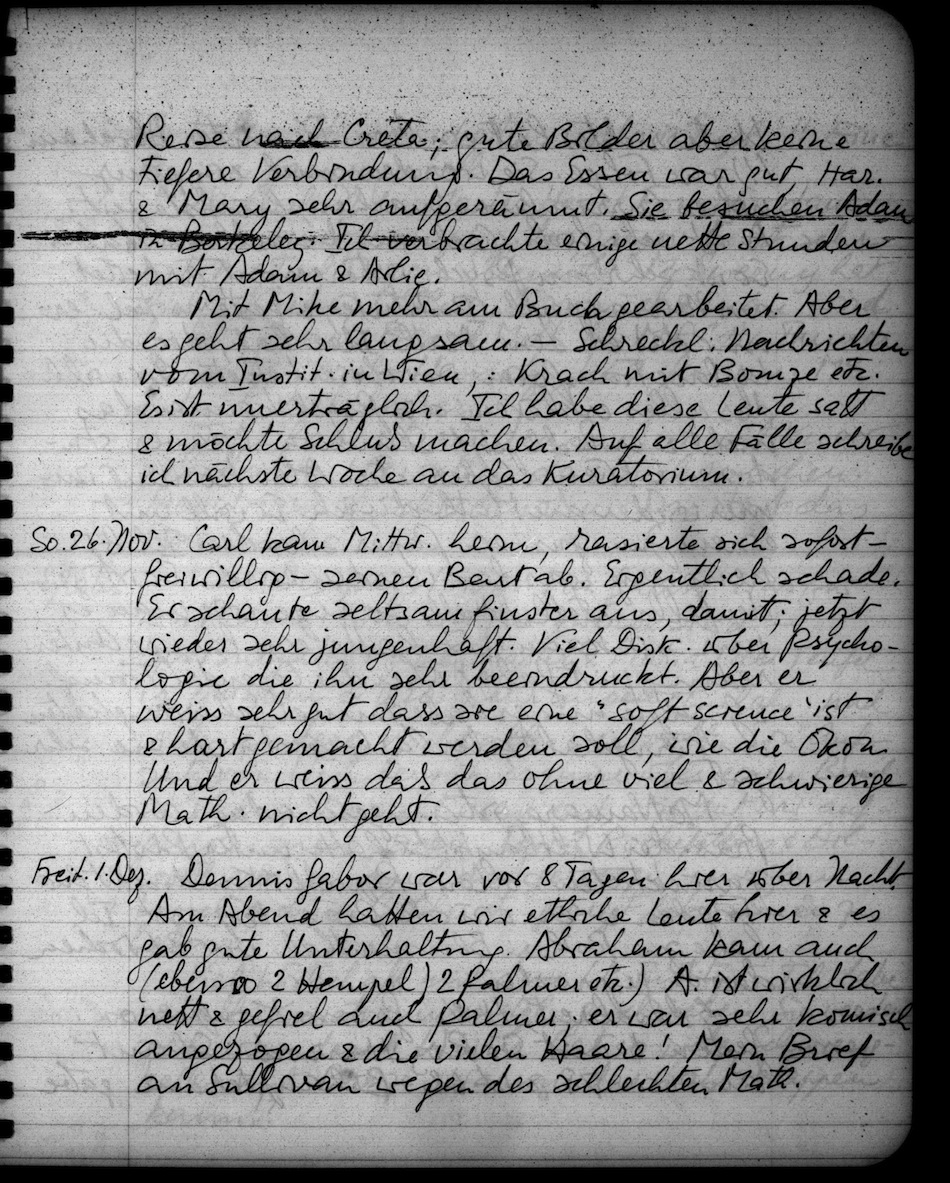 Reise nach Creta; gute Bilder aber keine
tiefere Verbindung. Das Essen war gut, Har.
& Mary sehr aufgeräumt. Sie besuchen Adam
in Berkeley. Ich verbrachte einige nette Stunden
mit Adam & Arlie.
Mit Mike mehr am Buch gearbeitet. Aber
es geht sehr langsam. — Schreckl. Nachrichten
vom Instit. in Wien,: Krach mit Bomze etc.
Es ist unerträglich. Ich habe diese Leute satt
& möchte Schluß machen. Auf alle Fälle schreibe
ich nächste Woche an das Kuratorium.
So. 26. Nov. Carl kam Mittw. heim, rasierte sich sofort –
freiwillig – seinen Bart ab. Eigentlich schade.
Er schaute seltsam finster aus, damit; jetzt
wieder sehr jungenhaft. Viel Disk. über Psycho-
logie die ihn sehr beeindruckt. Aber er
weiss sehr gut dass sie eine "soft science" ist
& hart gemacht werden soll, wie die Ökon.
Und er weiss daß das ohne viel & schwierige
Math. nicht geht.
Freit. 1. Dez. Dennis Gabor war vor 8 Tagen hier über Nacht.
Am Abend hatten wir etliche Leute hier & es
gab gute Unterhaltung. Abraham kam auch
(ebenso 2 Hempel) 2 Palmer etc.) A. ist wirklich
nett & gefiel auch Palmer; er war sehr komisch
angezogen & die vielen Haare! Mein Brief
an Sullivan wegen des schlechten Math.